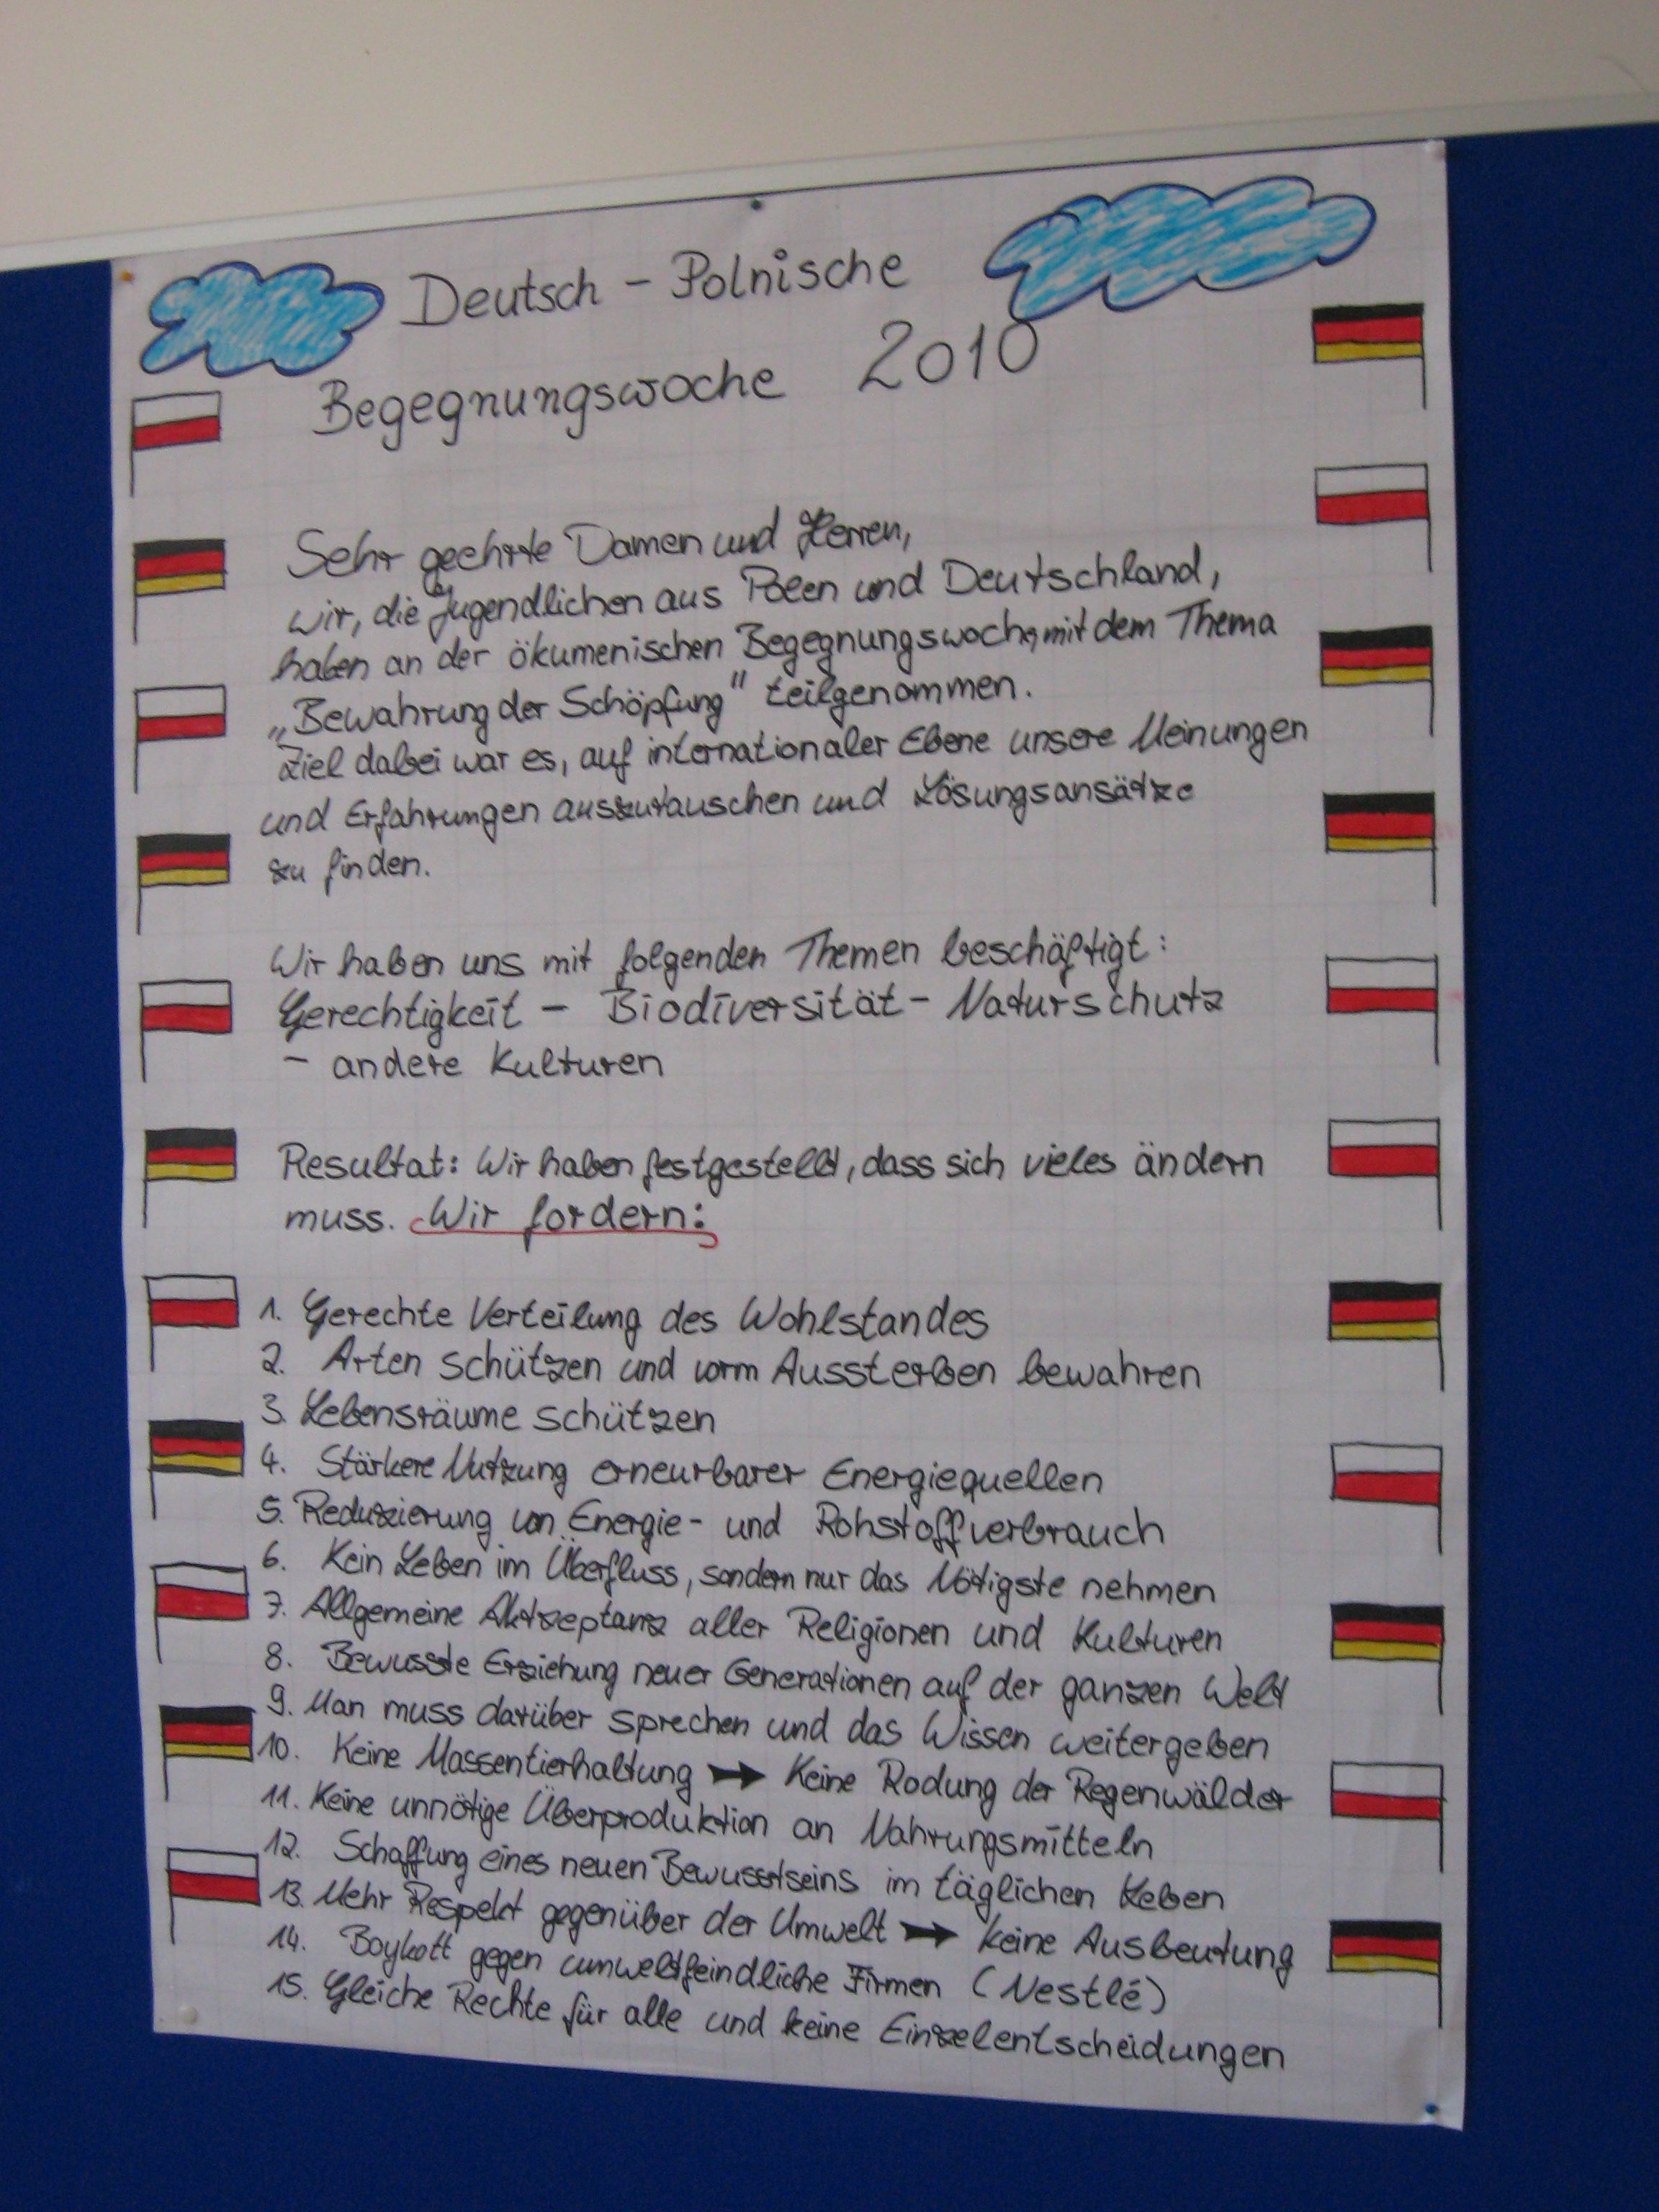 Deutsch - Polnische
Begegnungswoche 2010
Sehr geehrte Damen und Herren,
wir, die Jugendlichen aus Polen und Deutschland,
haben an der ökumenischen Begegnungswoche, mit dem Thema
„Bewahrung der Schöpfung" teilgenommen.
Ziel dabei war es, auf internationaler Ebene unsere Meinungen
und Erfahrungen auszutauschen und Lösungsansätze
zu finden.
Wir haben uns mit folgenden Themen beschäftigt:
Gerechtigkeit - Biodiversität - Naturschutz
- andere Kulturen
Resultat: Wir haben festgestellt, dass sich vieles ändern
muss. Wir fordern:
1. Gerechte Verteilung des Wohlstandes
2. Arten schützen und vorm Aussterben bewahren
3. Lebensräume schützen
4. Stärkere Nutzung erneurbarer Energiequellen
5. Reduzierung von Energie- und Rohstoffverbrauch
6. Kein Leben im Überfluss, sondern nur das Nötigste nehmen
7. Allgemeine Aktzeptanz aller Religionen und Kulturen
8. Bewusste Erziehung neuer Generationen auf der ganzen Welt
9. Man muss darüber sprechen und das Wissen weitergeben
10. Keine Massentierhaltung → Keine Rodung der Regenwälder
11. Keine unnötige Überproduktion an Nahrungsmitteln
12. Schaffung eines neuen Bewusstseins im täglichen Leben
13. Mehr Respekt gegenüber der Umwelt → keine Ausbeutung
14. Boykott gegen umweltfeindliche Firmen (Nestlé)
15. Gleiche Rechte für alle und keine Einzelentscheidungen